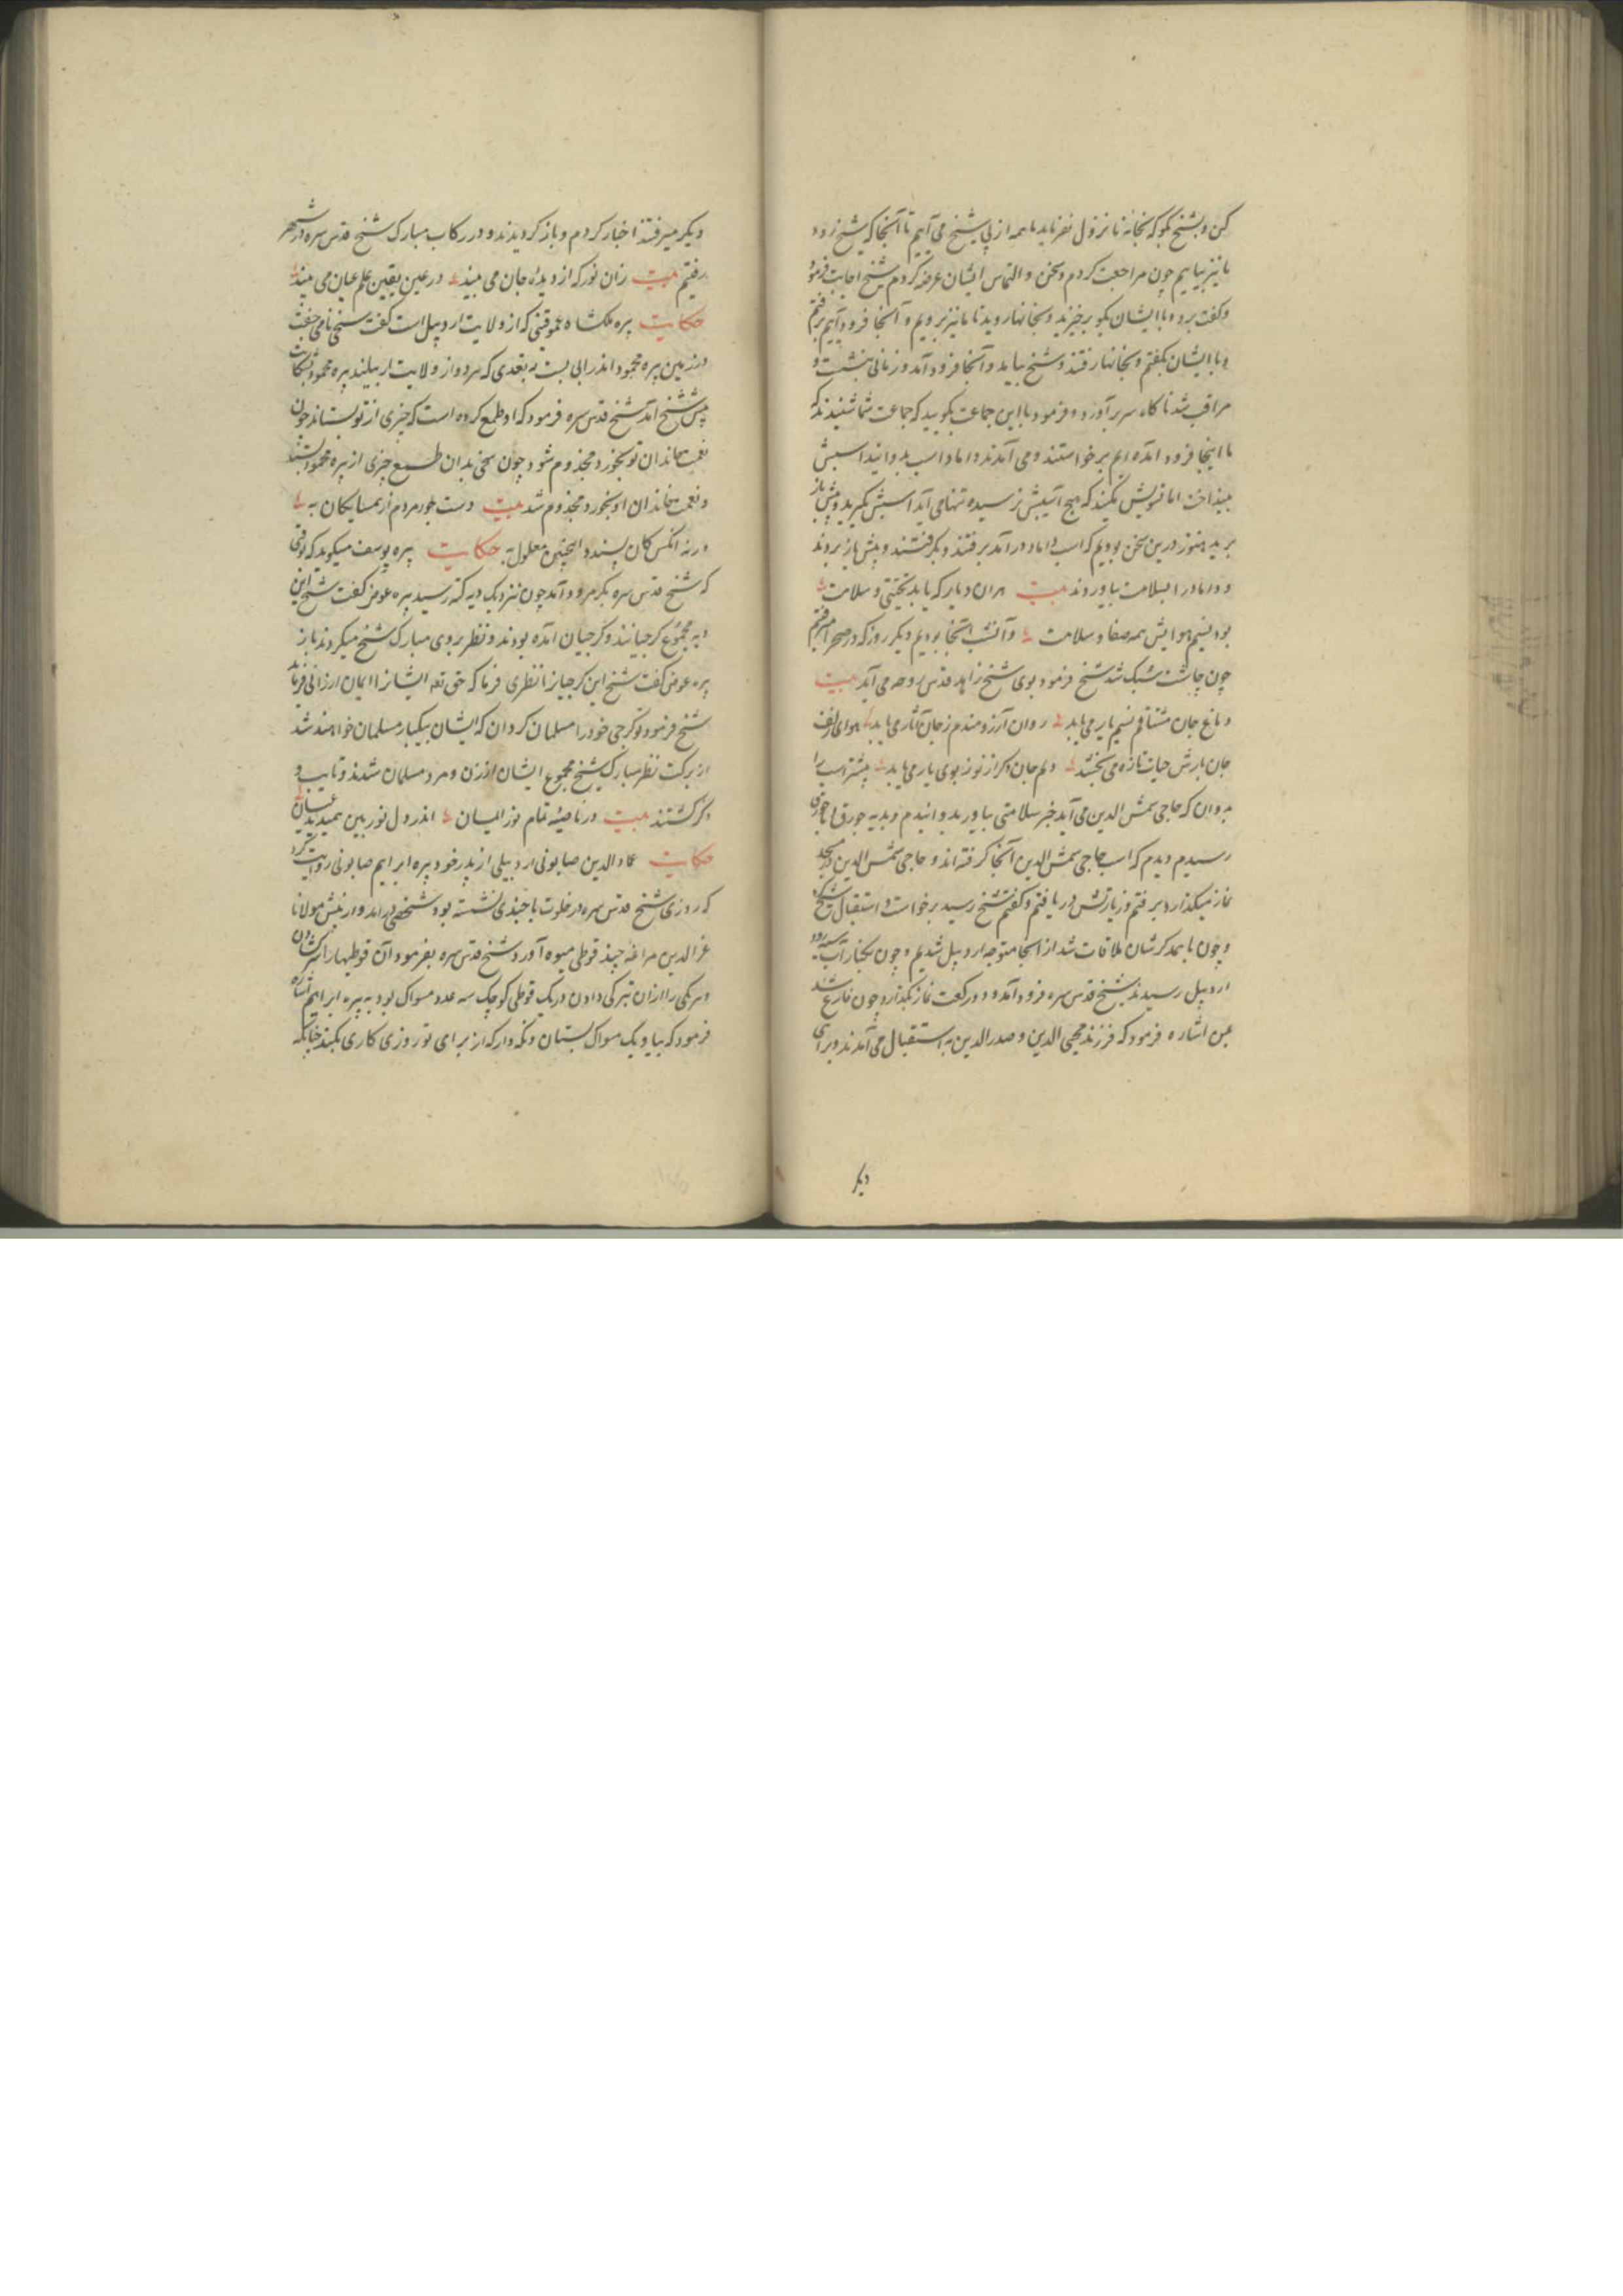 کن و بشیخ بکو که بخانه ما نزول نفرماید ما همه از پی شیخ می آییم تا آنجا که شیخ رود
ما نیز بیاییم چون مراجعت کردم و سخن و التماس ایشان عرضه کردم شیخ اجابت فرمود
و کفت برو و با ایشان بکو برخیزید و بخانها روید تا ما نیز برویم و آنجا فرود آییم برفتم
و با ایشان بکفتم و بخانها رفتند و شیخ بیامد و آنجا فرود آمد و زمانی بنشست و
مراقب شد ناکاه سر برآورد و فرمود با این جماعت بکویید که جماعت شما شنیدند که
ما اینجا فرود آمده ایم برخواستند و می آمدند داماد اسب بدوانید اسبش
بینداخت اما تشویش نکنید که هیچ آسیبش نرسیده تنها می آید اسبش بکیرید و پیش باز
برید هنوز درین سخن بودیم که اسب داماد درآمد برفتند و بکرفتند و پیش باز بردند
و داماد را بسلامت بیاوردند بیت هران دیار که یابد تحیتی و سلامت
بود نسیم هوایش همه صفا و سلامت و آنشب آنجا بودیم دیکر روز که در صحرا میرفتیم
چون چاشت سبک شد شیخ فرمود بوی شیخ زاهد قدس روحه می آید بیت
دماغ جان مشتاقم نسیم یار می یابد روان آرزومندم ز جان آثار می یابد هوای زلف
جان بارش حیات تازه می بخشد دلم جان دکر از نو ز بوی یار می یابد پیشتر اسب را
بدوان که حاجی شمس الدین می آید خبر سلامتی بیاور بدوانیدم و بدیه جورق
رسیدم دیدم که اسب حاجی شمس الدین آنجا کرفته اند و حاجی شمس الدین در مسجد
نماز میکذارد برفتم و زیارتش دریافتم و کفتم شیخ رسید برخواست و استقبال شیخ کرد
و چون با همدکرشان ملاقات شد از آنجا متوجه اردبیل شدیم و چون بکنار آب سه رود
اردبیل رسیدند شیخ قدس سره فرود آمد و دو رکعت نماز بکذارد چون فارغ شد
بمن اشاره فرمود که فرزند محیی الدین و صدر الدین به استقبال می آمدند و برای
دیکر
دیکر میرفتند اخبار کردم و باز کردیدند و در رکاب مبارک شیخ قدس سره در شهر
رفتیم بیت زان نور که از دیدهٔ جان می بیند در عین یقین علم عیان می بیند
حکایت پیره ملکشاه عموقینی که از ولایت اردبیل است کفت سخی نامی جفت
در زمین پیره محمود اندرابی بست به تعدی که هر دو از ولایت اردبیلند پیره محمود بشکایت
پیش شیخ آمد شیخ قدس سره فرمود که او طمع کرده است که چیزی از تو بستاند چون
نعمت خاندان تو بخورد مجذوم شود چون سخی بدان طمع چیزی از پیره محمود بستد
و نعمت خاندان او بخورد مجذوم شد بیت دست جور مردم از همسایکان به
ورنه آنکس کان پسندد اینچنین معلول به حکایت پیره یوسف میکوید که وقتی
که شیخ قدس سره بکرمرود آمد چون نزدیک دیه کته رسید پیره عوض کفت شیخ این
دیه مجموع کرجیانند و کرجیان آمده بودند و نظر بروی مبارک شیخ میکردند باز
پیره عوض کفت شیخ این کرجیانرا نظری فرما که حق تعه ایشانرا ایمان ارزانی فرماید
شیخ فرمود تو کرجی خود را مسلمان کردان که ایشان بیکبار مسلمان خواهند شد
از برکت نظر مبارک شیخ مجموع ایشان از زن و مرد مسلمان شدند و تایب و
ذاکر کشتند بیت در ناصیهٔ تمام نور ایمان اندر دل نوربین همیدید عیان
حکایت عماد الدین صابونی اردبیلی از پدر خود پیره ابراهیم صابونی روایت کرد
که روزی شیخ قدس سره در خلوت با چندی نشسته بود شخصی درآمد و از پیش مولانا
عز الدین مراغه چند قوطی میوه آورد شیخ قدس سره بفرمود آن قوطیها را سر کشادن
و هر یکی را از آن تبرکی دادن در یک قوطی کوچک سه عدد مسواک بود به پیره ابراهیم اشاره
فرمود که بیا و یک مسواک بستان و نکه دار که از برای تو روزی کاری بکند چنانکه